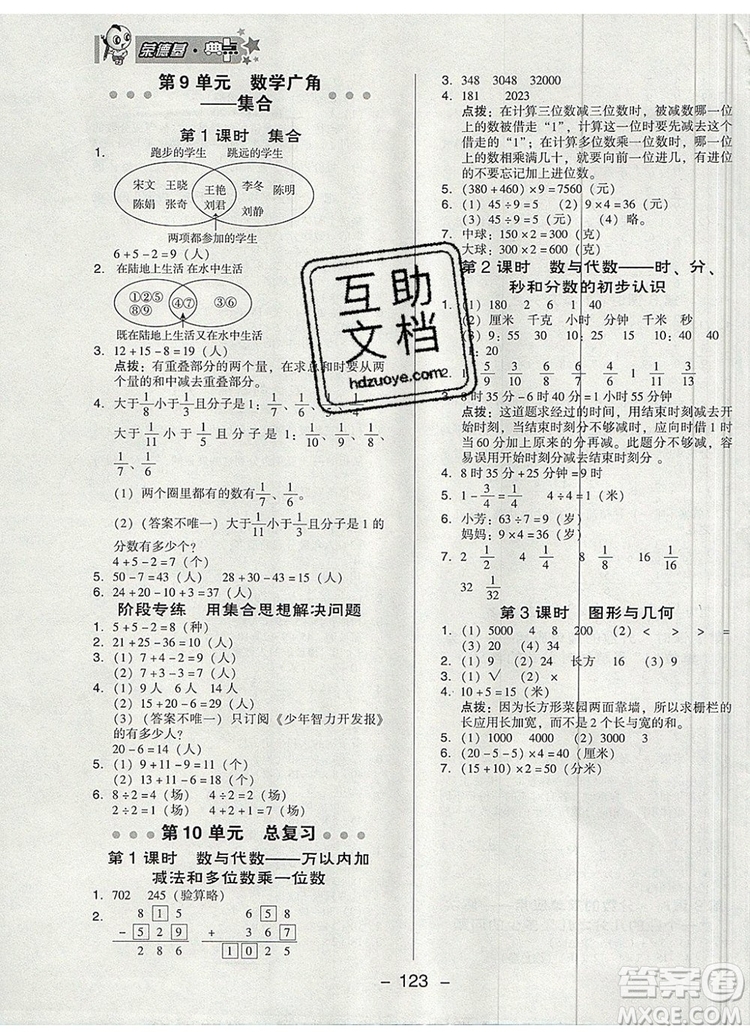 荣德基·典点
第9单元 数学广角
——集合
第1课时 集合
1. 跑步的学生 跳远的学生
宋文 王晓 王艳 李冬 陈明
陈娟 张奇 刘君 刘静
两项都参加的学生
6+5-2=9（人）
2. 在陆地上生活 在水中生活
①②⑤ ④⑦ ③⑥
⑧⑨
既在陆地上生活又在水中生活
3. 12+15-8=19（人）
点拨：有重叠部分的两个量，在求总和时要从两
个量的和中减去重叠部分。
4. 大于1/8小于1/4且分子是1：1/7、1/6、1/5；
大于1/11小于1/5且分子是1：1/10、1/9、1/8、
1/7、1/6
（1）两个圈里都有的数有1/7、1/6。
（2）（答案不唯一）大于1/11小于1/4且分子是1的
分数有多少个？
4+5-2=7（个）
5. 50-7=43（人） 28+30-43=15（人）
6. 24+20-10+3=37（人）
阶段专练 用集合思想解决问题
1. 5+5-2=8（种）
2. 21+25-36=10（人）
3. （1）7+4-2=9（人）
（2）7+4-0=11（人）
4. （1）9人 6人 14人
（2）15+20-6=29（人）
（3）（答案不唯一）只订阅《少年智力开发报》
的有多少人？
20-6=14（人）
5. （1）9+11-9=11（人）
（2）13+11-6=18（人）
6. 8÷2=4（场） 4÷2=2（场）
2÷2=1（场）
第10单元 总复习
第1课时 数与代数——万以内加
减法和多位数乘一位数
1. 702 245（验算略）
2. 8 1 5 6 5 8
- 5 2 9 + 3 6 7
2 8 6 1 0 2 5
3. 348 3048 32000
4. 181 2023
点拨：在计算三位数减三位数时，被减数哪一位
上的数被借走“1”，计算这一位时要先减去这个
借走的“1”；在计算多位数乘一位数时，哪一位
上的数相乘满几十，就要向前一位进几，进位
的不要忘记加上进位数。
5. （380+460）×9=7560（元）
6. （1）45÷9=5 （2）9×4=36（元）
（3）45÷9=5（元） （4）略。
7. 中球：900÷3=300（克）
大球：300×2=600（克）
第2课时 数与代数——时、分、
秒和分数的初步认识
1. （1）180 2 6 1 40
（2）厘米 千克 小时 分钟 千米 秒
（3）9：05 9：20 9：40 10：00
11：20
3. 8时35分-6时40分=1小时55分钟
点拨：这道题求经过的时间，用结束时刻减去开
始时刻，当结束时刻的分不够减时，从时退1
当60分加上原来的分再减。此题分不够减，容
易误用开始时刻减去结束时刻的分。
4. 8时35分+25分钟=9时
5. 1-3/4=1/4 4÷4=1（米）
6. 小芳：63÷7=9（岁）
妈妈：9×4=36（岁）
7. 2 1/2 4 1/4 8 1/8 16 1/16
32 1/32
第3课时 图形与几何
1. （1）5000 4 8 200 （2）< > > =
（3）20 （4）34
2. （1）9 （2）24 长方 （3）9
3. （1）√ （2）×
4. 10+5=15（米）
点拨：因为长方形菜园两面靠墙，所以求栅栏的
长应用长加宽，而不是2个长与宽的和。
5. 1000 4000 5000 4000 3000
6. （20-5-5）×4=40（厘米）
7. （15+10）×2=50（分米）
- 123 -
互助
文档
hdzuoye.com
答案圈
MXQE.COM